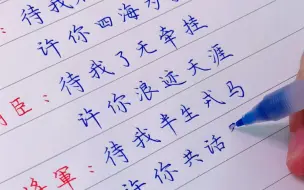 待我
许你四海
臣：待我了无牵挂
许你浪迹天涯
将軍：待我半生戎马
许你共话